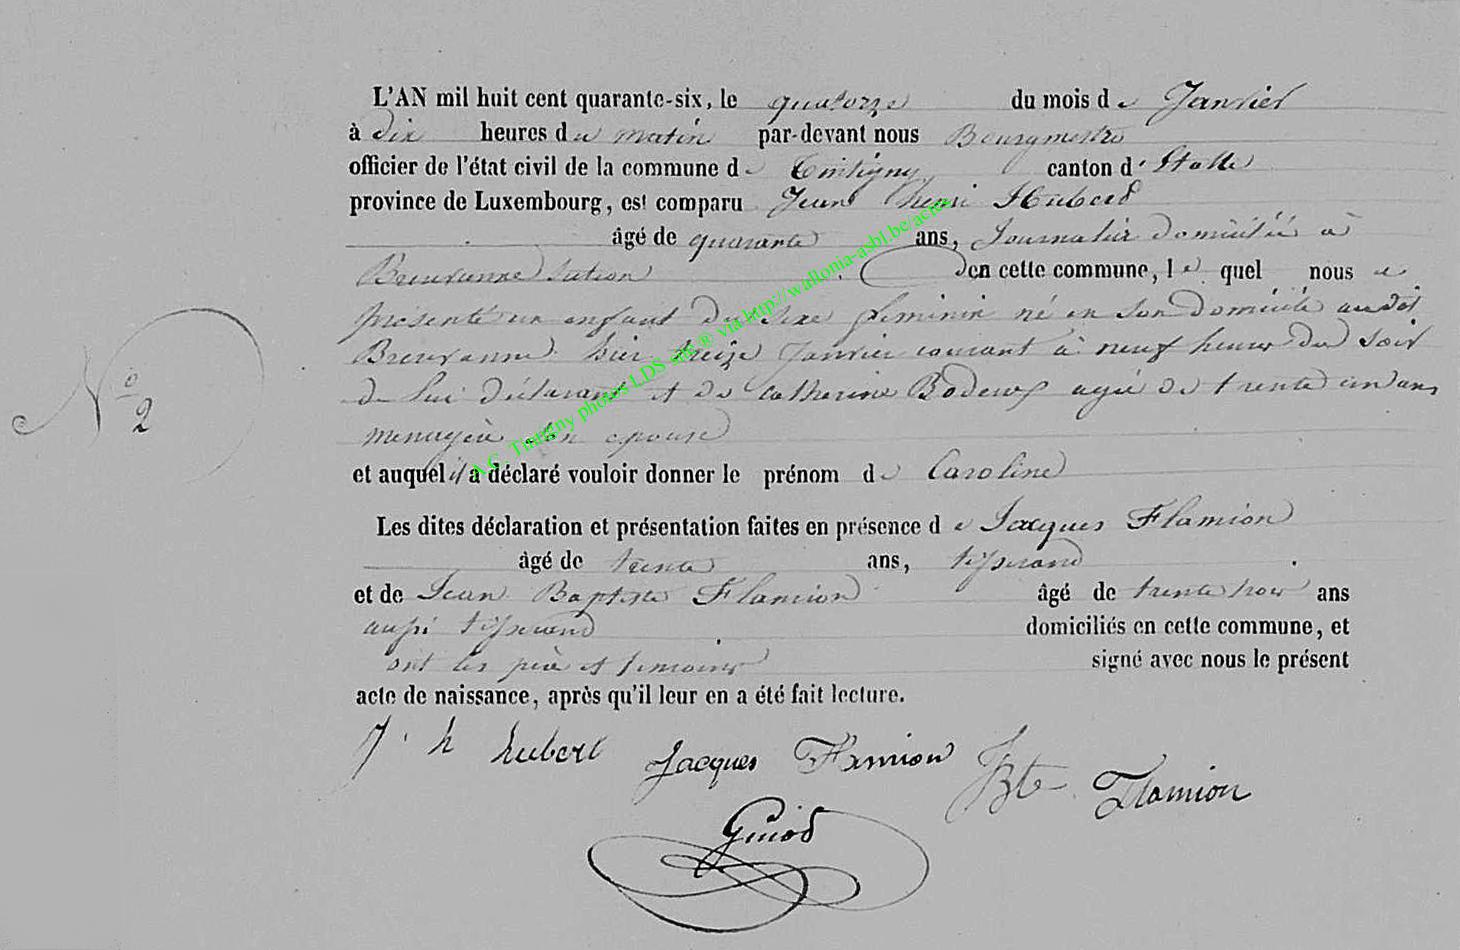 L'AN mil huit cent quarante-six, le quatorze du mois de Janvier
à dix heures du matin par-devant nous Bourgmestre
officier de l'état civil de la commune de Tintigny canton d'Etalle
province de Luxembourg, est comparu Jean henri Hubert
âgé de quarante ans, Journalier domicilié à
Breuvanne en cette commune, lequel nous a
présenté un enfant du sexe féminin né en son domicile audit
Breuvanne hier treize Janvier courant à neuf heures du soir
de lui déclarant et de Catherine agée de trente un ans
menagère son epouse
et auquel il a déclaré vouloir donner le prénom de Caroline
N° 2
Les dites déclaration et présentation faites en présence de Jacques Flamion
âgé de trente ans, tisserand
et de Jean Baptiste Flamion âgé de trente trois ans
aussi tisserand domiciliés en cette commune, et
ont les père et temoins signé avec nous le présent
acte de naissance, après qu'il leur en a été fait lecture.
J. h hubert Jacques Flamion JBte Flamion
Guiod
A.C. Tintigny photos LDS sde ® via http://wallonia-asbl.be/actes